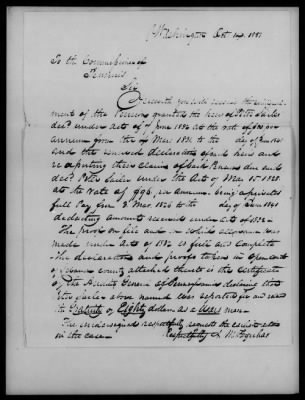 Washington Oct 14. 1851
To the Commissioner of
Pensions
Sir
Herewith you will receive the
ment of the Pension granted the heirs of Peter Sailer
decd. under Act of 7 June 1832 at the rate of
annum from the 4 Mar 1831 to the day of Jan 1841
and the renewed declaration of said heirs and
re asserting their claim of back Pension due said
decd. Peter Sailer under the Act of May 15 1828
at the rate of $96. per annum. being a privates
full Pay from 3 Mar. 1826 to the day of Jan 1841
deducting amounts received under act of 1832 -
The proof on file and on which allowance was
made under Act of 1832 is full and complete
The declaration and proofs taken in open court
of county attached thereto is the Certificate
of the Auditor General of Pennsylvania declaring that
Peter Sailer above named was reported for and recd
the Gratuity of Eighty dollars as a man -
The undersigned respectfully requests the earliest action
in the case -
Respectfully